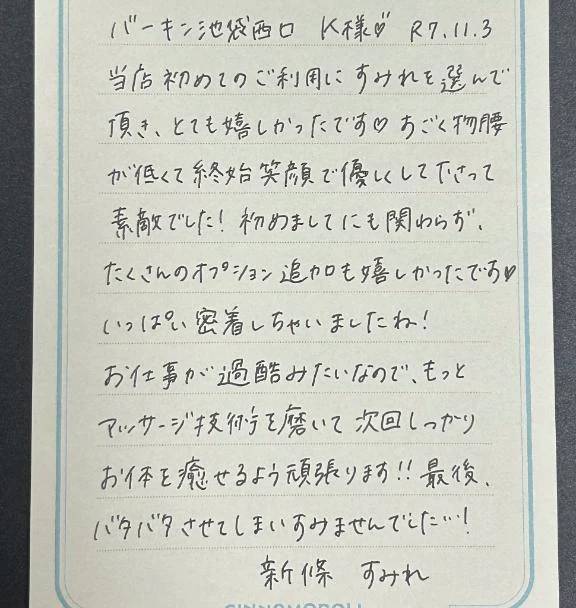 バーキン池袋西口 K様♡ R7.11.3
当店初めてのご利用にすみれを選んで
頂き、とても嬉しかったです♡ すごく物腰
が低くて終始笑顔で優しくして下さって
素敵でした！初めましてにも関わらず、
たくさんのオプション追加も嬉しかったです♡
いっぱい密着しちゃいましたね！
お仕事が過酷みたいなので、もっと
マッサージ技術を磨いて次回しっかり
お体を癒せるよう頑張ります!! 最後、
バタバタさせてしまいすみませんでした…！
新條 すみれ
CINNAMOROLL